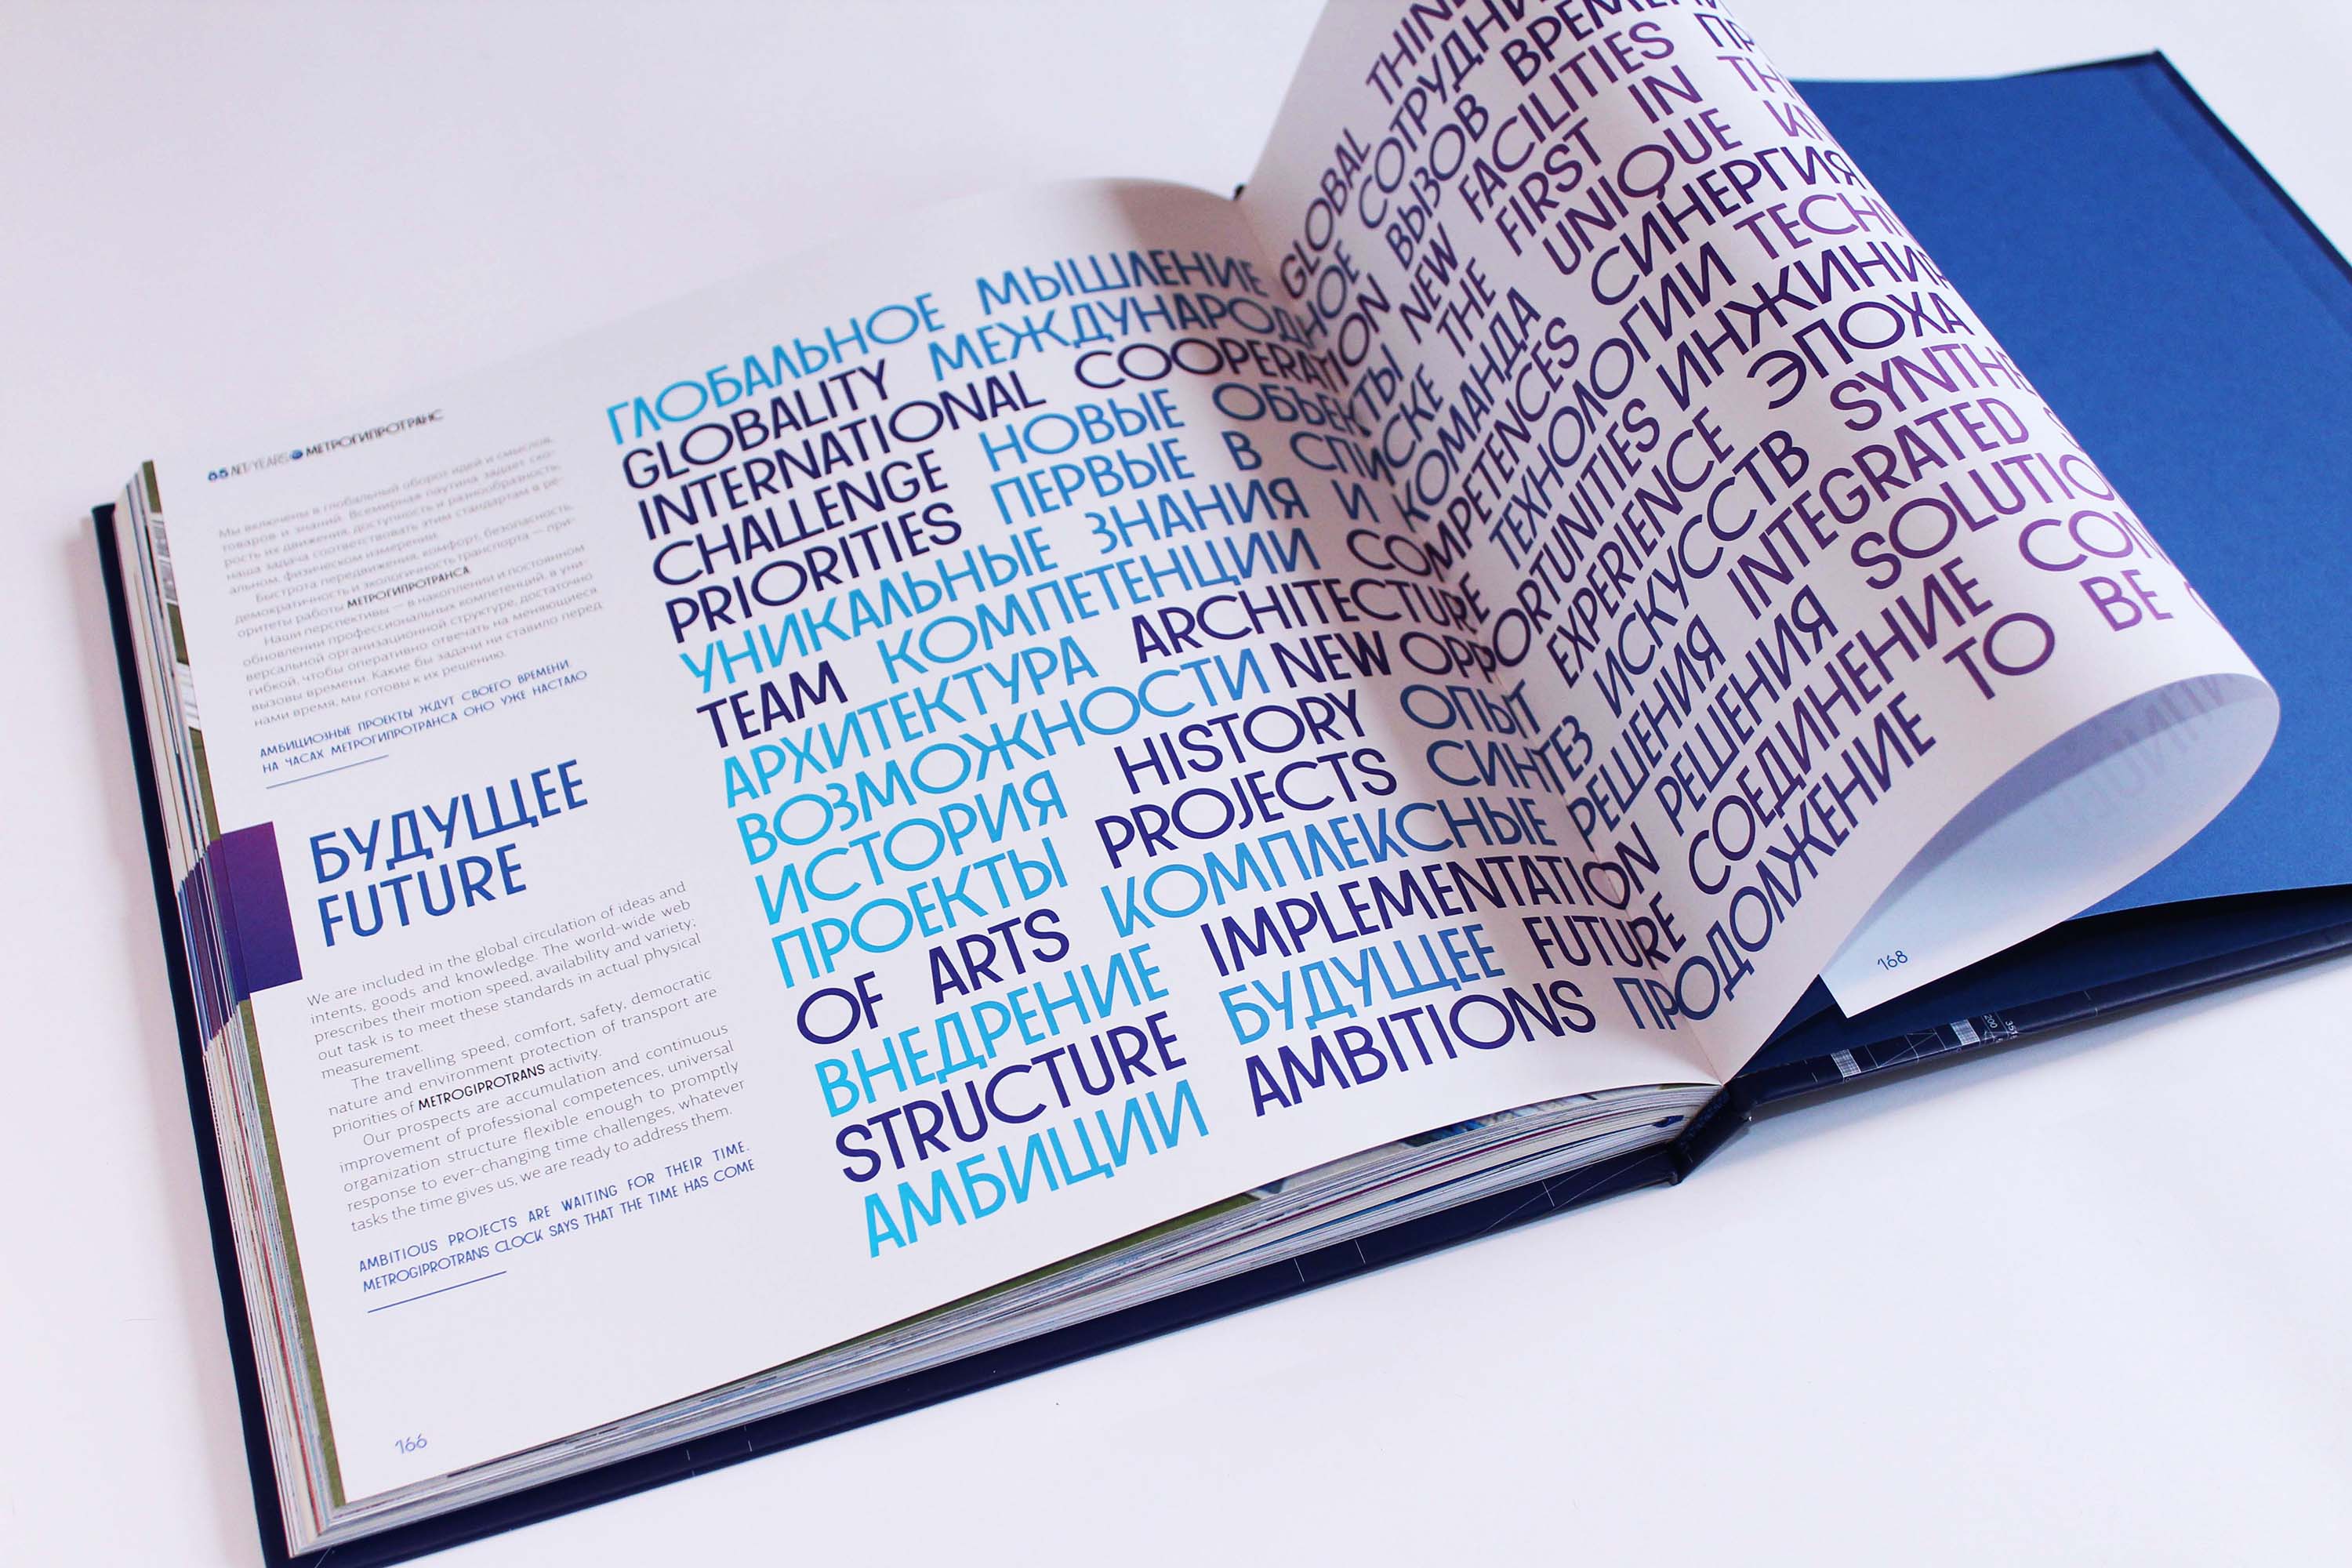 85 ЛЕТ/YEARS МЕТРОГИПРОТРАНС
Мы включены в глобальный оборот идей и смыслов,
товаров и знаний. Всемирная паутина задает ско-
рость их движения, доступность и разнообразность,
наша задача соответствовать этим стандартам в ре-
альном, физическом измерении.
Быстрота передвижения, комфорт, безопасность,
демократичность и экологичность транспорта — при-
оритеты работы МЕТРОГИПРОТРАНСА.
Наши перспективы — в накоплении и постоянном
обновлении профессиональных компетенций, в уни-
версальной организационной структуре, достаточно
гибкой, чтобы оперативно отвечать на меняющиеся
вызовы времени. Какие бы задачи ни ставило перед
нами время, мы готовы к их решению.
АМБИЦИОЗНЫЕ ПРОЕКТЫ ЖДУТ СВОЕГО ВРЕМЕНИ
НА ЧАСАХ МЕТРОГИПРОТРАНСА ОНО УЖЕ НАСТАЛО
БУДУЩЕЕ
FUTURE
We are included in the global circulation of ideas and
intents, goods and knowledge. The world-wide web
prescribes their motion speed, availability and variety;
out task is to meet these standards in actual physical
measurement.
The travelling speed, comfort, safety, democratic
nature and environment protection of transport are
priorities of METROGIPROTRANS activity.
Our prospects are accumulation and continuous
improvement of professional competences, universal
organization structure flexible enough to promptly
response to ever-changing time challenges, whatever
tasks the time gives us, we are ready to address them.
AMBITIOUS PROJECTS ARE WAITING FOR THEIR TIME.
METROGIPROTRANS CLOCK SAYS THAT THE TIME HAS COME
166
ГЛОБАЛЬНОЕ МЫШЛЕНИЕ GLOBAL
GLOBALITY МЕЖДУНАРОДНОЕ СОТРУДНИ
INTERNATIONAL COOPERATION ВЫЗОВ ВРЕМЕН
CHALLENGE НОВЫЕ ОБЪЕКТЫ NEW FACILITIES ПР
PRIORITIES ПЕРВЫЕ В СПИСКЕ THE FIRST IN TH
УНИКАЛЬНЫЕ ЗНАНИЯ И КОМАНДА UNIQUE KN
TEAM КОМПЕТЕНЦИИ COMPETENCES СИНЕРГИЯ
АРХИТЕКТУРА ARCHITECTURE ТЕХНОЛОГИИ TECHN
ВОЗМОЖНОСТИ NEW OPPORTUNITIES ИНЖИНИР
ИСТОРИЯ HISTORY ОПЫТ EXPERIENCE ЭПОХА
ПРОЕКТЫ PROJECTS СИНТЕЗ ИСКУССТВ SYNTHE
OF ARTS КОМПЛЕКСНЫЕ РЕШЕНИЯ INTEGRATED
ВНЕДРЕНИЕ IMPLEMENTATION РЕШЕНИЯ SOLUTIO
STRUCTURE БУДУЩЕЕ FUTURE СОЕДИНЕНИЕ CON
АМБИЦИИ AMBITIONS ПРОДОЛЖЕНИЕ TO BE
168